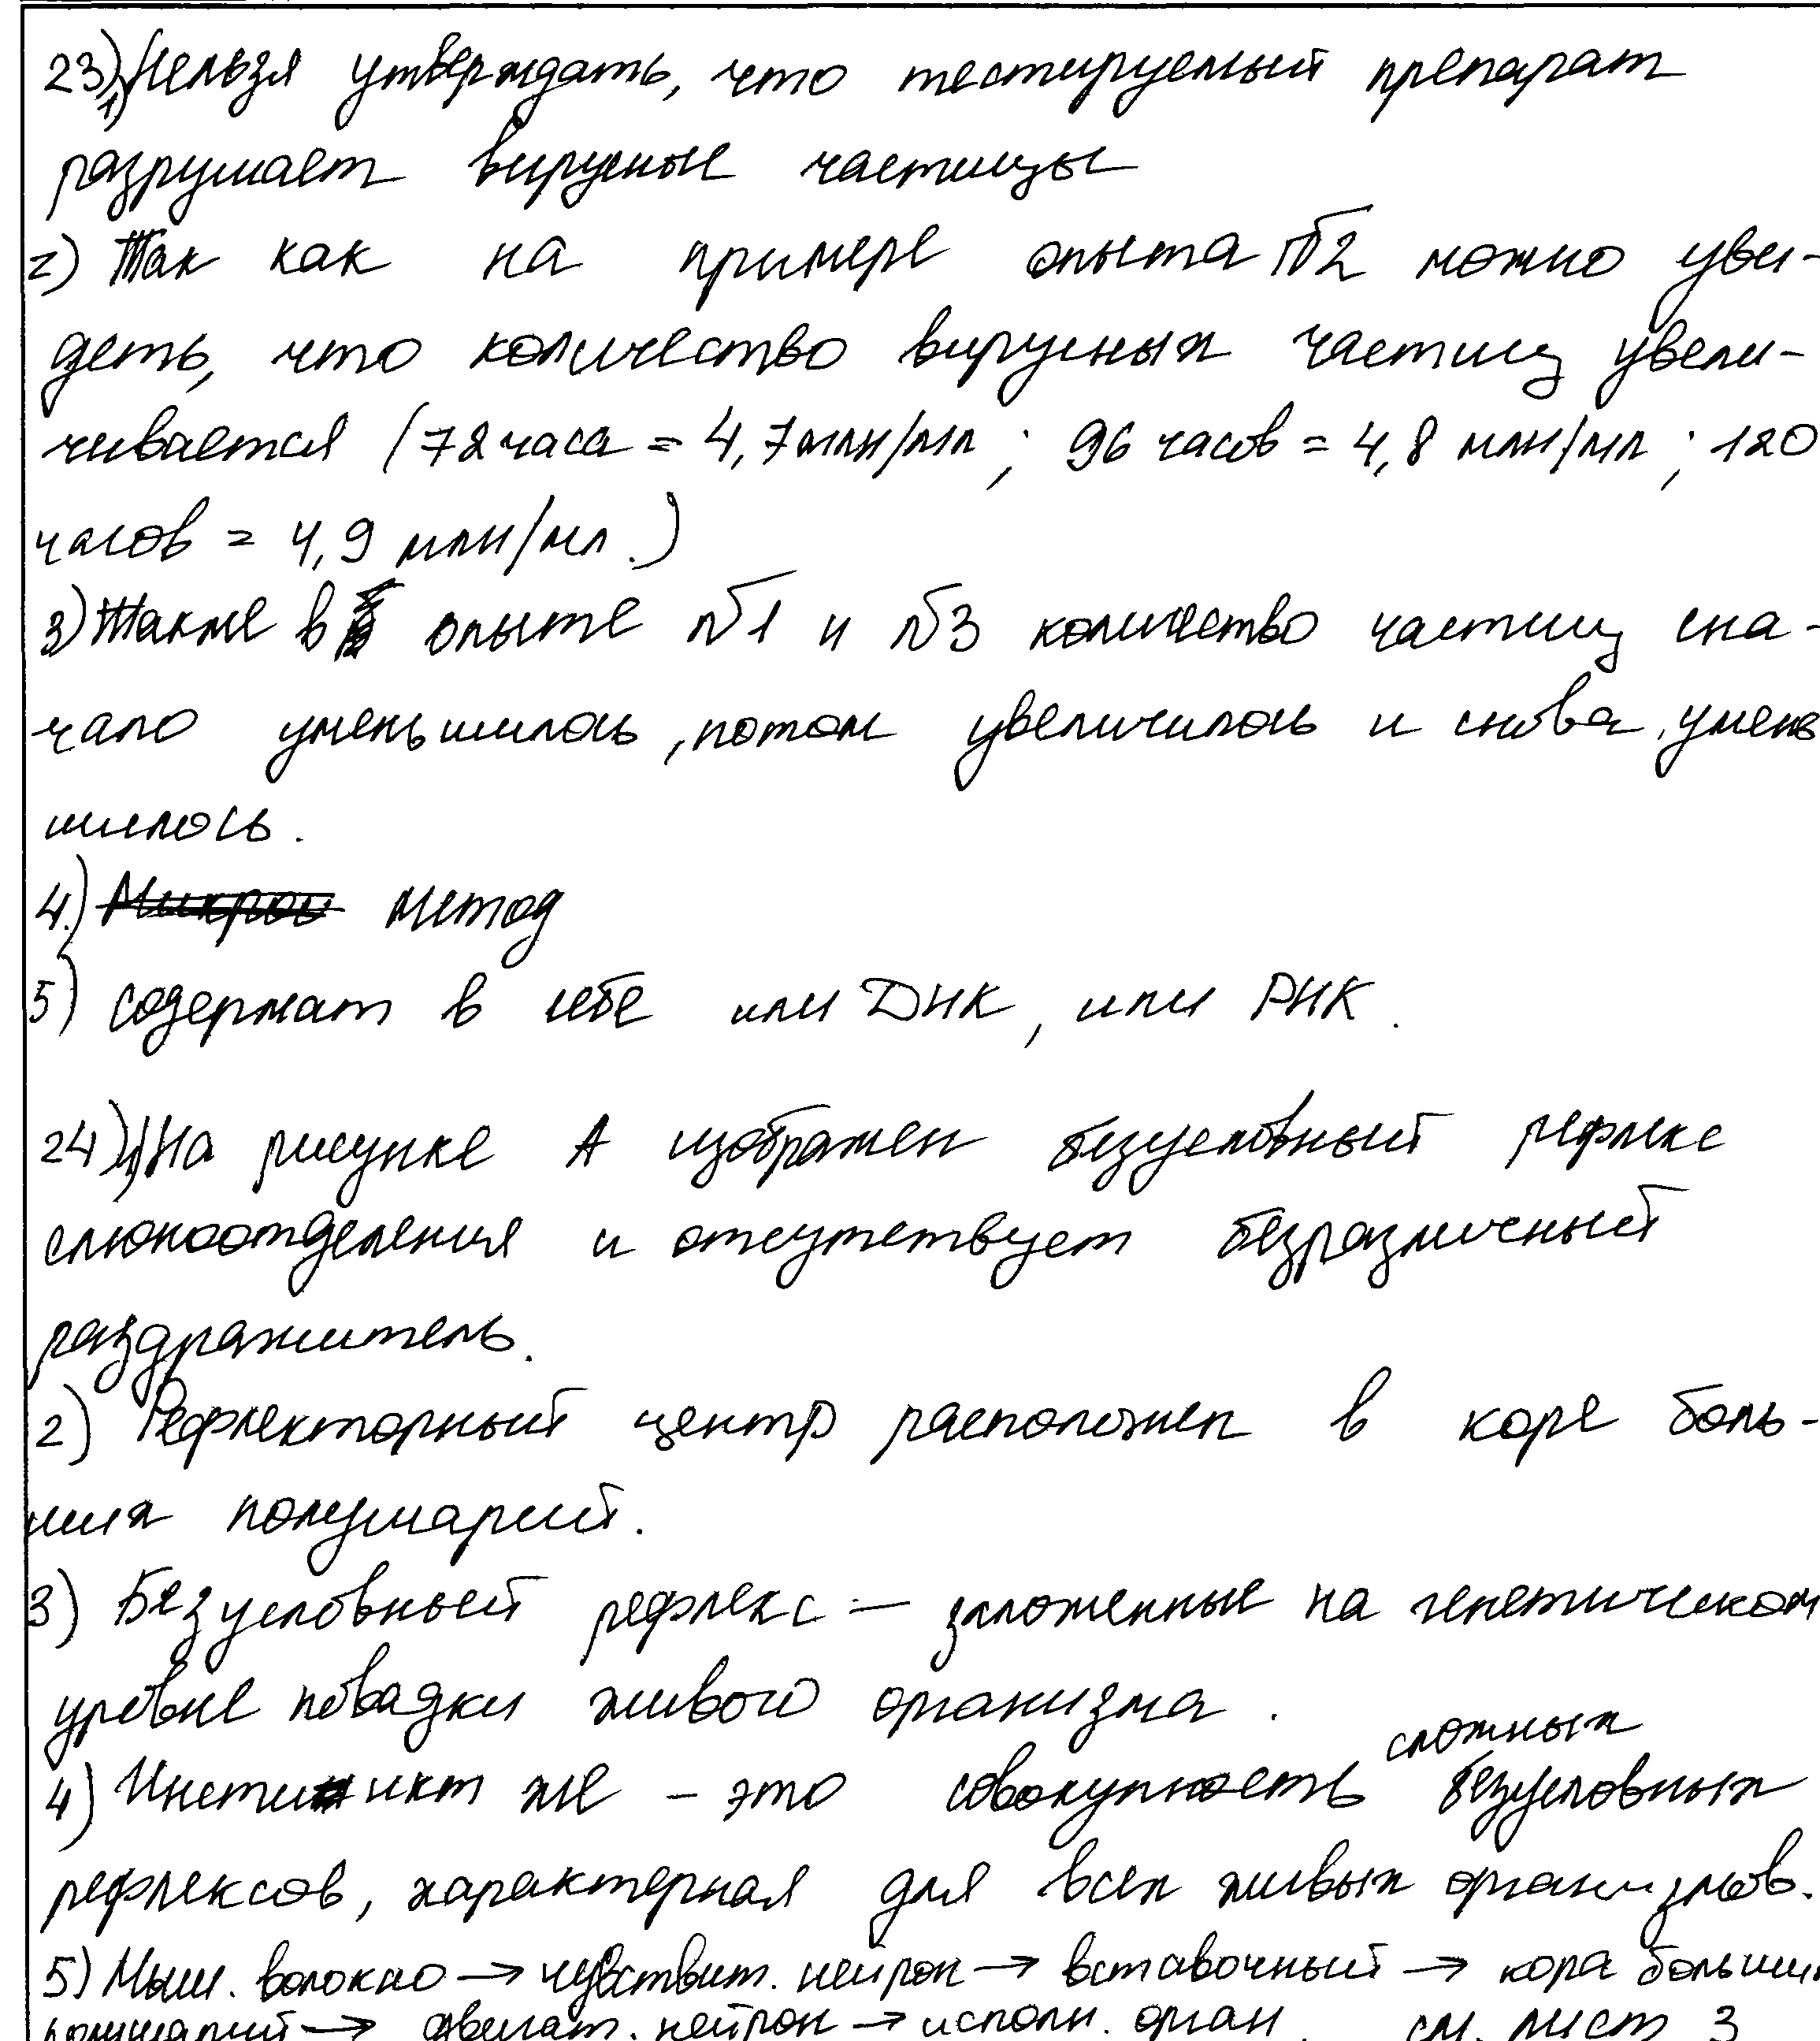 23) 1) Нельзя утверждать, что тестируемый препарат
разрушает вирусные частицы
2) Так как на примере опыта №2 можно уви-
деть, что количество вирусных частиц увели-
чивается (72 часа = 4,7 млн/мл ; 96 часов = 4,8 млн/мл ; 120
часов = 4,9 млн/мл.)
3) Также в опыте №1 и №3 количество частиц сна-
чало уменьшилось, потом увеличилось и снова умень
шилось.
4.) Микрос метод
5) содержат в себе или ДНК, или РНК.
24) 1) На рисунке А изображен безусловный рефлекс
слюноотделения и отсутствует безразличный
раздражитель.
2) Рефлекторный центр расположен в коре боль-
ших полушарий.
3) Безусловный рефлекс – заложенные на генетическом
уровне повадки живого организма.
сложных
4) Инстинкт же – это совокупность безусловных
рефлексов, характерная для всех живых организмов.
5) Мыш. волокно → чувствит. нейрон → вставочный → кора больших
полушарий → двигат. нейрон → исполн. орган. см. лист 3